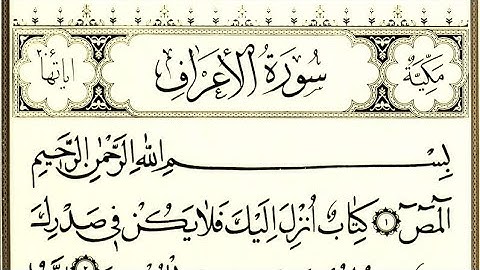 مَكِّيَّةٌ
سُورَةُ الْأَعْرَافِ
اٰيَاتُهَا ٢٠٦
بِسْمِ اللهِ الرَّحْمٰنِ الرَّحِيمِ
الٓمٓصٓ ۝١ كِتَابٌ اُنْزِلَ اِلَيْكَ فَلَا يَكُنْ فٖى صَدْرِكَ